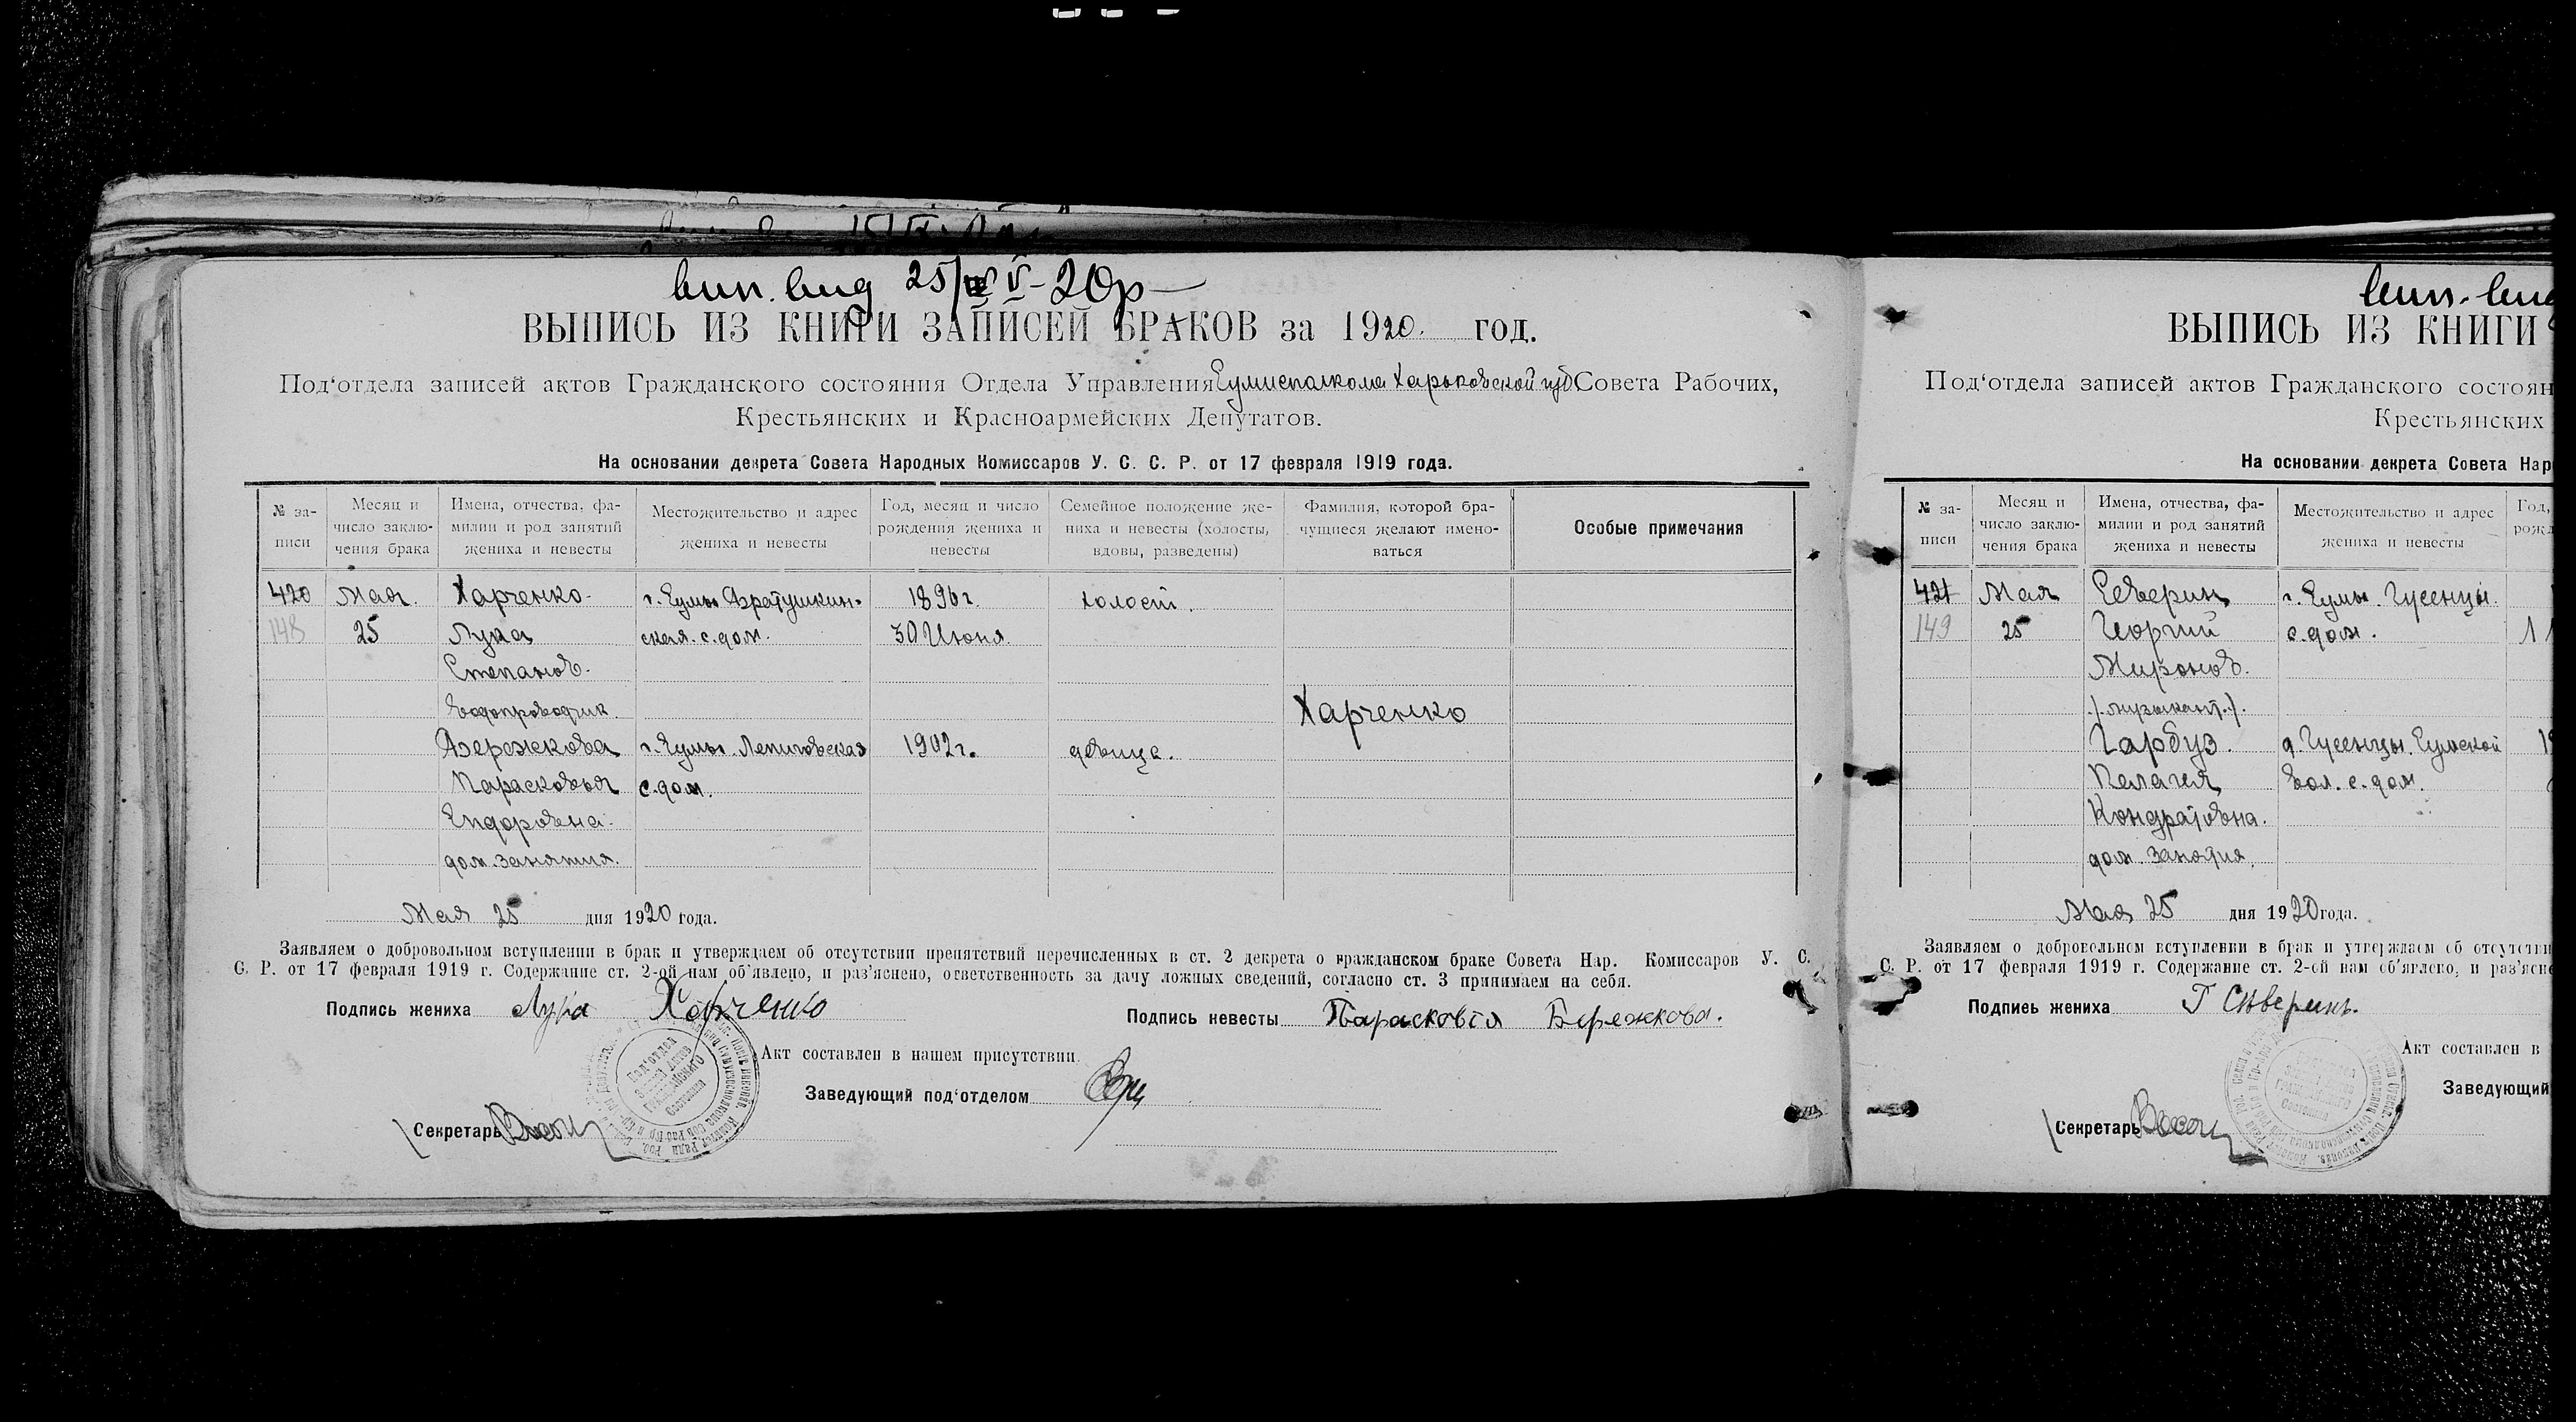 вып. выд 25/V-20р
ВЫПИСЬ ИЗ КНИГИ ЗАПИСЕЙ БРАКОВ за 1920. год.
Под‘отдела записей актов Гражданского состояния Отдела Управления Сумисполкома Харьковской губ Совета Рабочих,
Крестьянских и Красноармейских Депутатов.
На основании декрета Совета Народных Комиссаров У. С. С. Р. от 17 февраля 1919 года.
№ за-
писи
Месяц и
число заклю-
чения брака
Имена, отчества, фа-
милии и род занятий
жениха и невесты
Местожительство и адрес
жениха и невесты
Год, месяц и число
рождения жениха и
невесты
Семейное положение же-
ниха и невесты (холосты,
вдовы, разведены)
Фамилия, которой бра-
чущиеся желают имено-
ваться
Особые примечания
420
148
Мая
25
Харченко
Лука
Степанов.
водопроводчик.
г. Сумы
ская. с. дом.
1896 г.
30 Июня.
холост.
Харченко
Бережкова
Парасковья
Ендоровна.
дом. занятия.
г. Сумы
с. дом.
1902 г.
девица.
Мая 25 дня 1920 года.
Заявляем о добровольном вступлении в брак и утверждаем об отсутствии препятствий перечисленных в ст. 2 декрета о гражданском браке Совета Нар. Комиссаров У. С.
С. Р. от 17 февраля 1919 г. Содержание ст. 2-ой нам об‘явлено, и раз‘яснено, ответственность за дачу ложных сведений, согласно ст. 3 принимаем на себя.
Подпись жениха Лука Харченко
Подпись невесты Парасковія Бережкова.
Акт составлен в нашем присутствии.
Заведующий под‘отделом
Секретарь
Под‘отдел
Записи Актов
Гражданского
Состояния
вып. выд
ВЫПИСЬ ИЗ КНИГИ
Под‘отдела записей актов Гражданского состоян
Крестьянских
На основании декрета Совета Нар
№ за-
писи
Месяц и
число заклю-
чения брака
Имена, отчества, фа-
милии и род занятий
жениха и невесты
Местожительство и адрес
жениха и невесты
Год,
рожд
421
149
Мая
25
Северин
Георгий
Миронов.
/музыкант./.
г. Сумы. Гусенцы.
с. дом.
Гарбуз.
Пелагея
Кондратовна.
дом. занятия.
д. Гусенцы. Сумской
вол. с. дом.
Мая 25 дня 1920 года.
Заявляем о добровольном вступлении в брак и утверждаем об отсутстви
С. Р. от 17 февраля 1919 г. Содержание ст. 2-ой нам об‘явлено, и раз‘ясне
Подпись жениха Г Сѣверинъ.
Акт составлен в
Заведующий
Секретарь